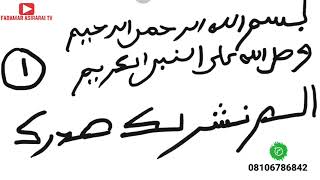 FADAMAR ASIRARAI TV
بسم الله الرحمن الرحيم
وصل الله على النبي الكريم
١
الم نشرلك صدرك
08106786842